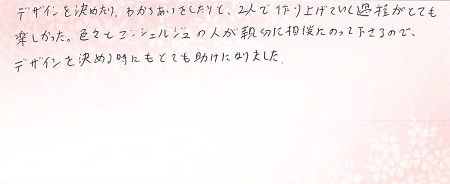 デザインを決めたり、わかちあいをしたりと、2人で作り上げていく過程がとても
楽しかった。色々とコンシェルジュの人が親切に相談にのって下さるので、
デザインを決める時にもとても助けになりました。